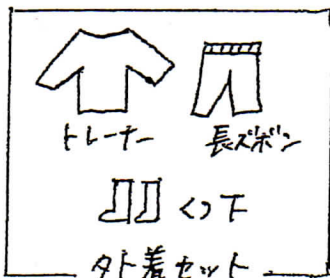 トレーナー 長ズボン
くつ下
外着セット